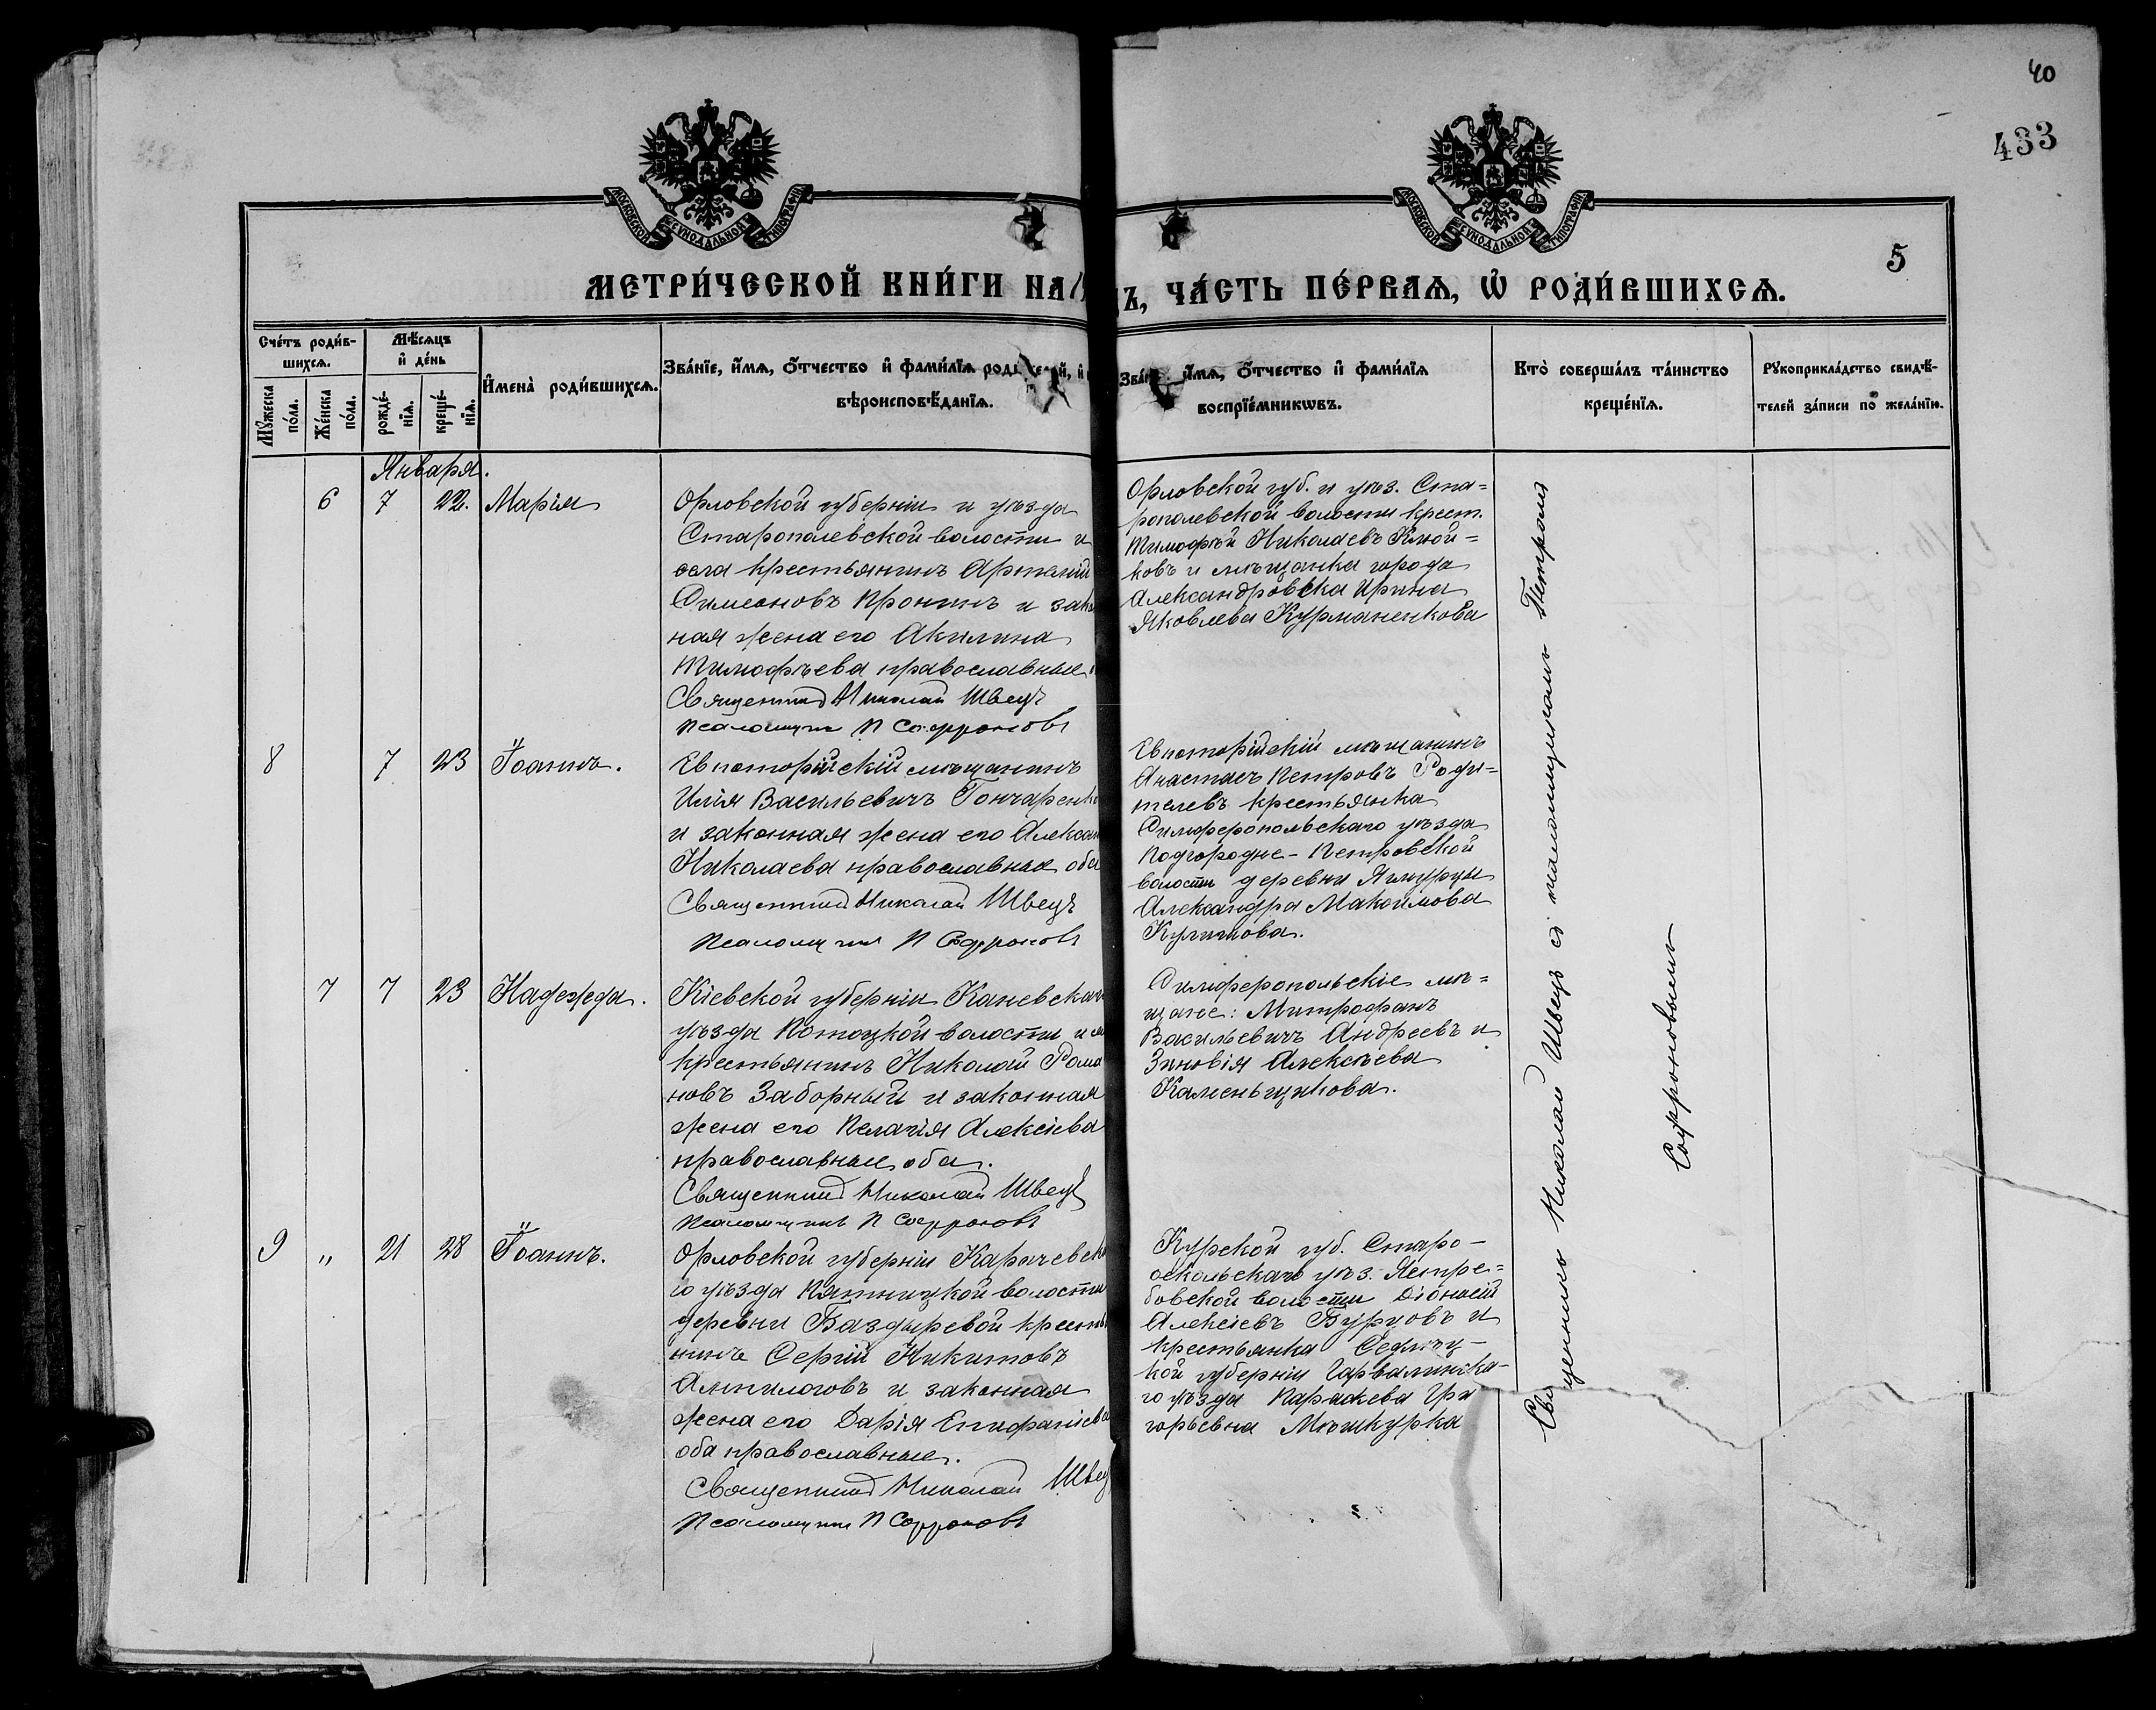 40
433
МОСКОВСКОЙ СѴНОДАЛЬНОЙ ТИПОГРАФІИ
МОСКОВСКОЙ СѴНОДАЛЬНОЙ ТИПОГРАФІИ
5
МЕТРИ́ЧЕСКОЙ КНИ́ГИ НА
Ъ, ЧА́СТЬ ПЕ́РВАѦ, Ѽ РОДИ́ВШИХСѦ.
Сче́тъ роди́в-
шихсѧ.
Мꙋ́жеска по́ла.
Же́нска по́ла.
Мѣ́сѧцъ
и҆ де́нь
рожде́-
нїѧ.
креще́-
нїѧ.
И҆мена̀ роди́вшихсѧ.
Зва́нїе, и҆́мѧ, ѻ҆́тчество и҆ фами́лїѧ роди́телей, и҆
вѣроисповѣ́данїѧ.
Зва́нїе, и҆́мѧ, ѻ҆́тчество и҆ фами́лїѧ
воспрїе́мникѡвъ.
Кто̀ соверша́лъ та́инство
креще́нїѧ.
Рꙋкоприкла́дство свидѣ́-
телей за́писи по жела́нїю.
Января.
6 7 22. Марія
Орловской губерніи и уѣзда
Старополевской волости и
села крестьянинъ Артемій
Симеоновъ Пронинъ и зако
ная жена его Акилина
Тимофѣева православные
Священникъ Николай Швецъ
Псаломщикъ П Софроновъ
Орловской губ. и уѣз. Ста=
рополевской волости крест.
Тимофѣй Николаевъ Клюй=
ковъ и мѣщанка города
Александровска Ирина
Яковлева Курманенкова
8 7 23 Іоаннъ.
Евпаторійскій мѣщанинъ
Илія Васильевичъ Гончаренко
и законная жена его Алексан
Николаева православные оба
Священникъ Николай Швецъ
Псаломщикъ П Софроновъ
Евпаторійскій мѣщанинъ
Анастасъ Петровъ Роди=
телевъ крестьянка
Симферопольскаго уѣзда
Подгородне-Петровской
волости деревни Ямурцы
Александра Максимова
Куликова.
7 7 23 Надежда.
Кіевской губерніи Каневскаго
уѣзда Потоцкой волости и
крестьянинъ Николай Рома
новъ Заборный и законная
жена его Пелагія Алексіева
православные оба.
Священникъ Николай Швецъ
Псаломщикъ П Софроновъ
Симферопольскіе мѣ=
щане: Митрофанъ
Васильевичъ Андреевъ и
Зиновія Алексѣева
Каменьщикова.
9 " 21 28 Іоаннъ.
Орловской губерніи Карачевска
го уѣзда Пятницкой волости
деревни Баздыревой крестья
нинъ Сергій Никитовъ
Ампилоговъ и законная
жена его Дарія Епифаніева
оба православные.
Священникъ Николай Швец
Псаломщикъ П Софроновъ
Курской губ. Старо-
оскольскаго уѣз. Ястре=
бовской волости Діонисій
Алексіевъ Бурцовъ и
крестьянка Седлец-
кой губерніи Гарвалинска-
го уѣзда Параскева Гри
горьевна Мюшкурка
Священникъ Николай Швецъ съ псаломщикомъ Петромъ
Софроновымъ